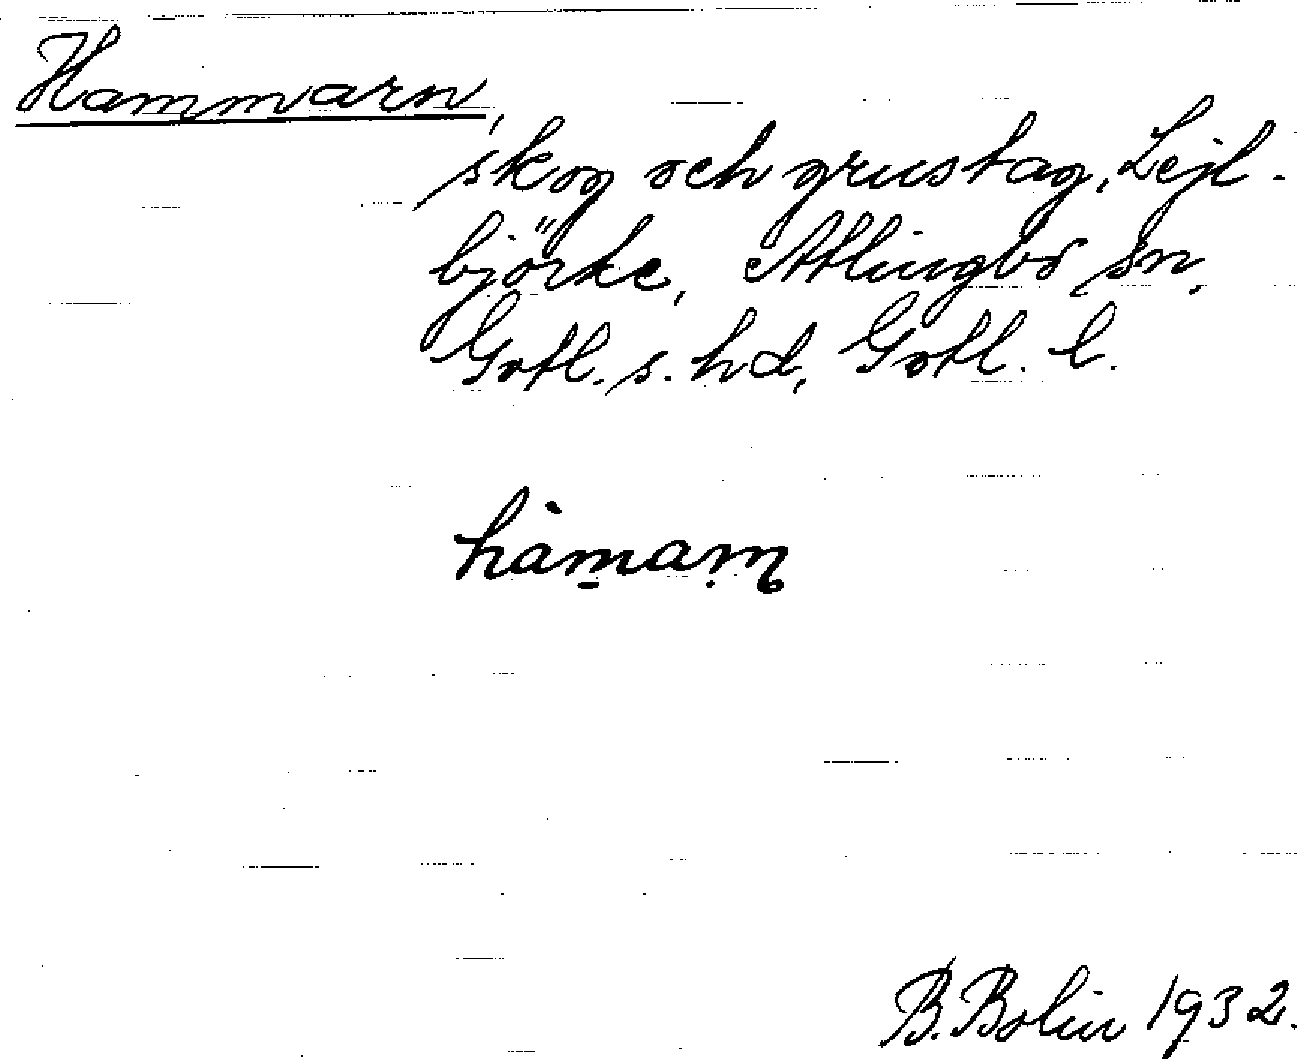 Hammarn,
skog och grustag, Lejl-
björke, Atlingbo sn,
Gotl. s. hd, Gotl. l.
hàmam̩
B. Bolin 1932.